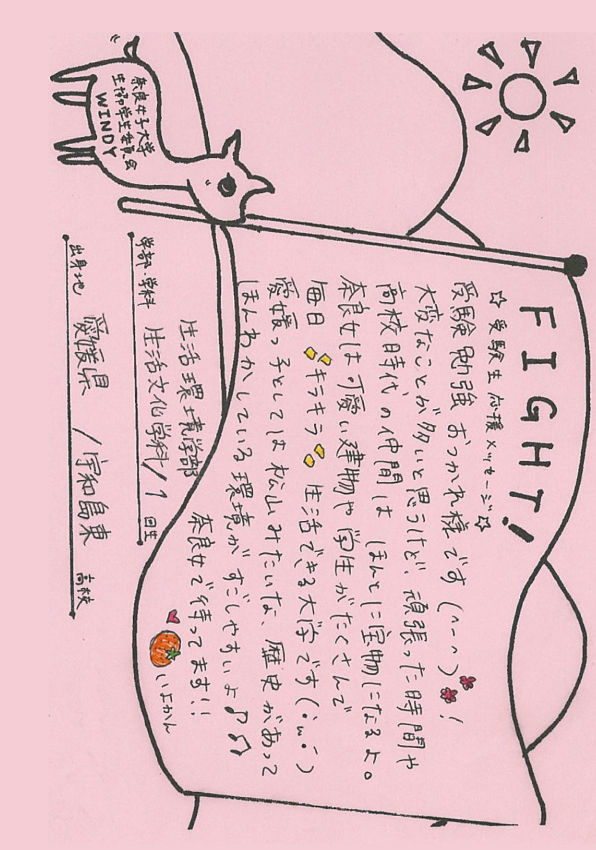 FIGHT!
☆受験生応援メッセージ☆
受験勉強おつかれ様です(^-^)!
大変なことが多いと思うけど、頑張った時間や
高校時代の仲間は ほんとに宝物になるよ。
奈良女は可愛い建物や学生がたくさんで
毎日 キラキラ 生活できる大学です(・ω・)
愛媛っ子としては松山みたいな、歴史があって
ほんわかしている環境がすごしやすいよ♪♫
奈良女で待ってます!!
いよかん
奈良女子大学
生協学生委員会
WINDY
学部・学科 生活環境学部
生活文化学科/1 回生
出身地 愛媛県 /宇和島東 高校